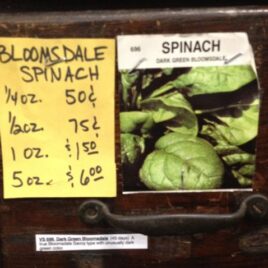 BLOOMSDALE
SPINACH
1/4 OZ. 50¢
1/2 OZ. 75¢
1 OZ. $1.50
5 OZ. $6.00
696 SPINACH
DARK GREEN BLOOMSDALE
Dark Green Bloomsdale (45 days) A
true Bloomsdale Savoy type with unusually dark
green color.